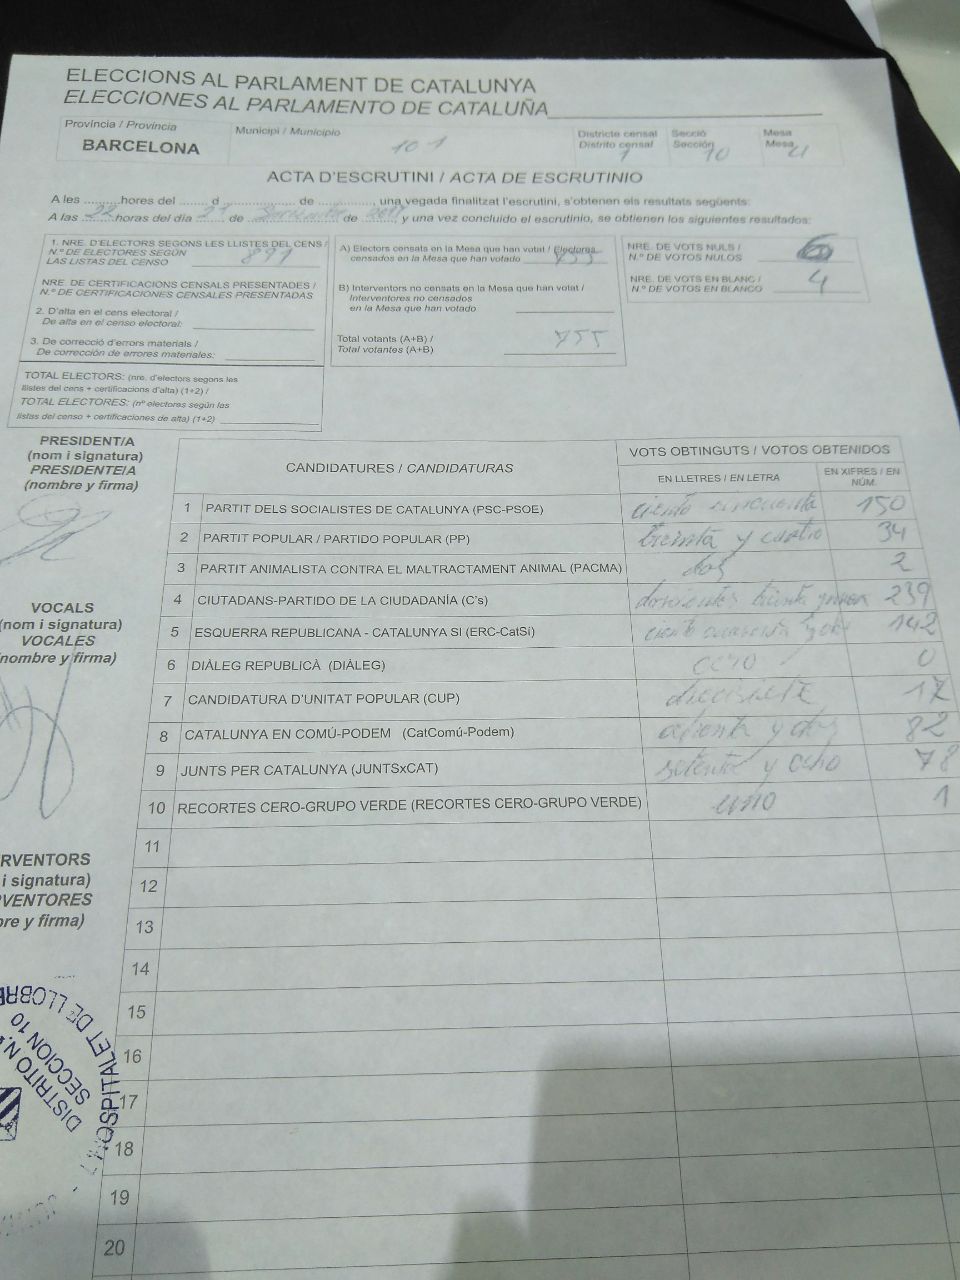 ELECCIONS AL PARLAMENT DE CATALUNYA
ELECCIONES AL PARLAMENTO DE CATALUÑA
Província / Provincia
BARCELONA
Municipi / Municipio
101
Districte censal
Distrito censal 1
Secció
Sección 10
Mesa
Mesa U
ACTA D'ESCRUTINI / ACTA DE ESCRUTINIO
A les ..........hores del ...... d .................... de ..............., una vegada finalitzat l'escrutini, s'obtenen els resultats següents:
A las 22 horas del día 21 de de 2017 y una vez concluido el escrutinio, se obtienen los siguientes resultados:
1. NRE. D'ELECTORS SEGONS LES LLISTES DEL CENS /
N.º DE ELECTORES SEGÚN
LAS LISTAS DEL CENSO 891
NRE. DE CERTIFICACIONS CENSALS PRESENTADES /
N.º DE CERTIFICACIONES CENSALES PRESENTADAS
2. D'alta en el cens electoral /
De alta en el censo electoral:
3. De correcció d'errors materials /
De corrección de errores materiales:
TOTAL ELECTORS: (nre. d'electors segons les
llistes del cens + certificacions d'alta) (1+2) /
TOTAL ELECTORES: (nº electores según las
listas del censo + certificaciones de alta) (1+2)
A) Electors censats en la Mesa que han votat / Electores
censados en la Mesa que han votado 755
B) Interventors no censats en la Mesa que han votat /
Interventores no censados
en la Mesa que han votado
Total votants (A+B) /
Total votantes (A+B) 755
NRE. DE VOTS NULS /
N.º DE VOTOS NULOS 6
NRE. DE VOTS EN BLANC /
N.º DE VOTOS EN BLANCO 4
PRESIDENT/A
(nom i signatura)
PRESIDENTE/A
(nombre y firma)
VOCALS
(nom i signatura)
VOCALES
nombre y firma)
RVENTORS
i signatura)
VENTORES
bre y firma)
CANDIDATURES / CANDIDATURAS
VOTS OBTINGUTS / VOTOS OBTENIDOS
EN LLETRES / EN LETRA
EN XIFRES / EN
NÚM.
1 PARTIT DELS SOCIALISTES DE CATALUNYA (PSC-PSOE) ciento cincuenta 150
2 PARTIT POPULAR / PARTIDO POPULAR (PP) treinta y cuatro 34
3 PARTIT ANIMALISTA CONTRA EL MALTRACTAMENT ANIMAL (PACMA) dos 2
4 CIUTADANS-PARTIDO DE LA CIUDADANÍA (C's) doscientos treinta y nueve 239
5 ESQUERRA REPUBLICANA - CATALUNYA SI (ERC-CatSí) ciento cuarenta y dos 142
6 DIÀLEG REPUBLICÀ (DIÀLEG) cero 0
7 CANDIDATURA D'UNITAT POPULAR (CUP) diecisiete 17
8 CATALUNYA EN COMÚ-PODEM (CatComú-Podem) ochenta y dos 82
9 JUNTS PER CATALUNYA (JUNTSxCAT) setenta y ocho 78
10 RECORTES CERO-GRUPO VERDE (RECORTES CERO-GRUPO VERDE) uno 1
11
12
13
14
15
16
17
18
19
20
L'HOSPITALET DE LLOBRE
DISTRITO N.
SECCION 10